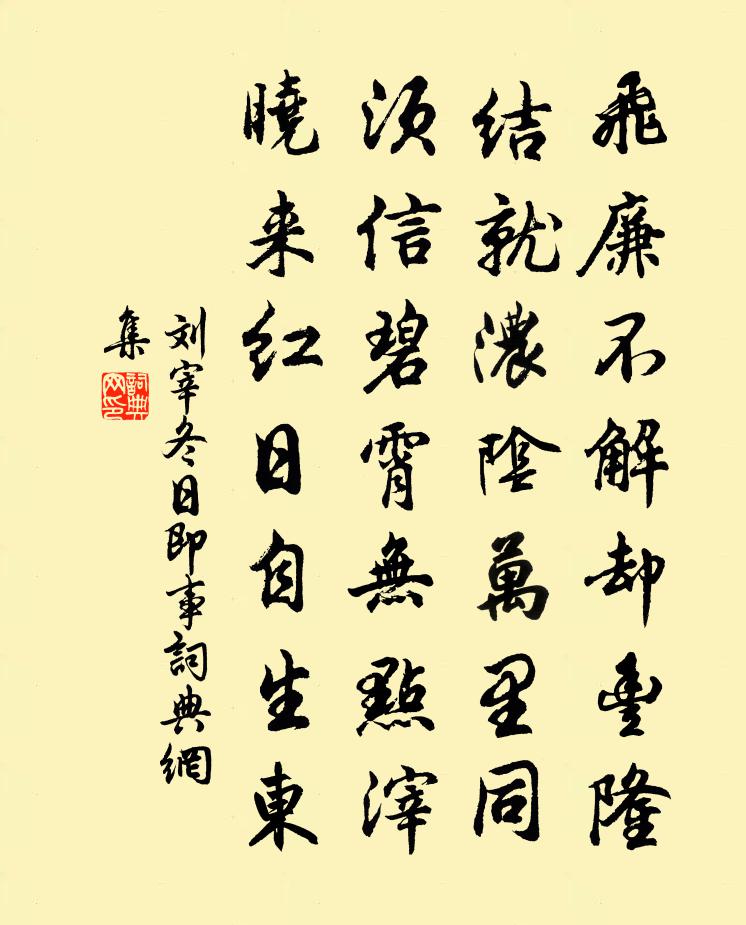 飛廉不解却豊隆
結就濃陰萬里同
須信碧霄無點滓
曉来红日自生東
刘宰冬日即事詞典網
集
詞典网印